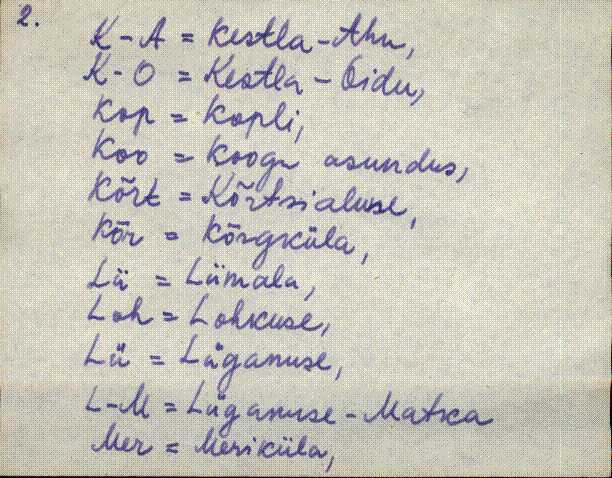 2.
K-A = Kestla-Ahu,
K-O = Kestla-Oidu,
Kop = Kopli,
Koo = Koogu asundus,
Kõrt = Kõrtsialuse,
Kõr = Kõrgküla,
Lii = Liimala,
Loh = Lohkuse,
Lü = Lüganuse,
L-M = Lüganuse-Matka
Mer = Meriküla,